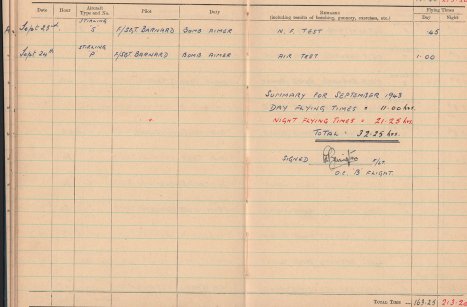 Date Hour Aircraft Type and No. Pilot Duty Remarks (including results of bombing, gunnery, exercises, etc.) Flying Times
Day Night
Sept 23rd STIRLING S F/SGT BARNARD BOMB AIMER N.F. TEST .45
Sept 24th STIRLING P F/SGT BARNARD BOMB AIMER AIR TEST 1.00
SUMMARY FOR SEPTEMBER 1943
DAY FLYING TIMES = 11.00 hrs.
NIGHT FLYING TIMES = 21.25 hrs.
TOTAL = 32.25 hrs.
SIGNED
O.C. 'B' FLIGHT.
TOTAL TIME 163.25